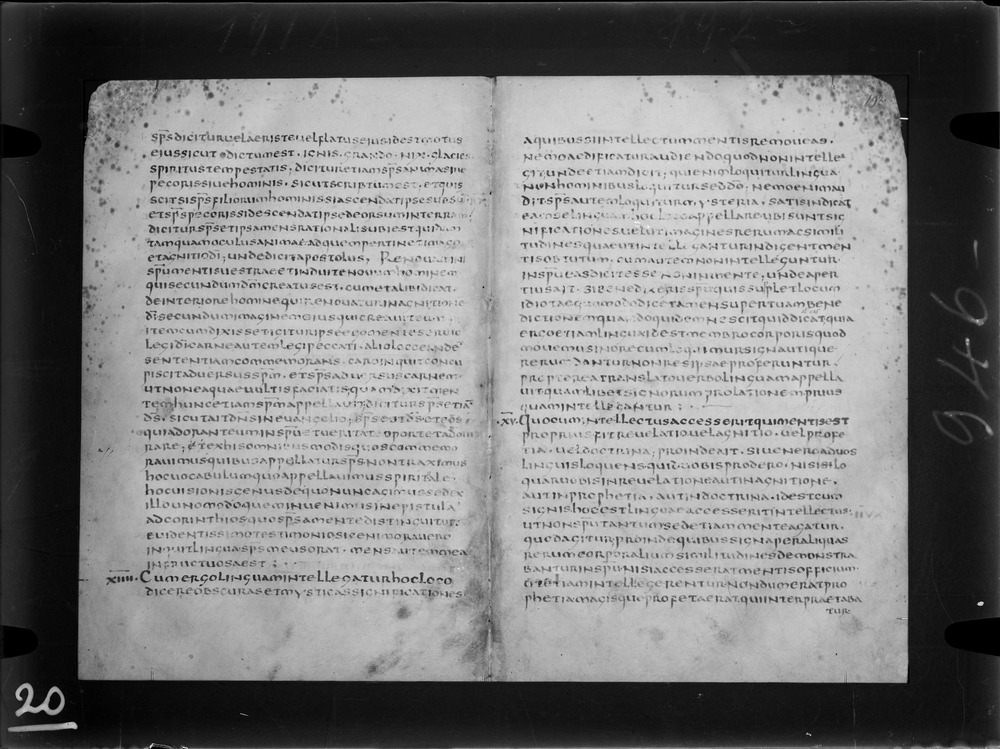 sp̄s dicitur vel aeris vel flatus eius idest motus
eius sicut dictum est. ignis. grando. nix. glacies
spiritus tempestatis; dicitur etiam sp̄s animasive
pecoris sive hominis. sicut scribtum est. et quis
scit si sp̄s filiorum hominis si ascendat ipse sursu
et sp̄s pecoris si descendat ipse deorsum in terram
dicitur sp̄s et ipsa mens rationalis ubi est quidam
tamquam oculus animae ad quem pertinet imago
et agnitio dī; unde dicit apostolus, Renovamini
spū mentis vestrae et induite novum hominem
qui secundum dm̄ creatus est. cum et alibi dicat.
de interiore homine qui renovatur in agnitione
dī secundum imaginem eius qui creavit eum.
item cum dixisset igitur ipse ego mente servio
legi dī carne autem legi peccati. alio loco eande
sententiam commemorans. caro inquit concu
piscit adversus sp̄m. et sp̄s adversus carnem
ut non ea quae vultis faciatis quam dixit men
tem hunc etiam sp̄m appellavit; dicitur sp̄s etiā
ds̄. sicut ait dn̄s in evangelio; sp̄s est ds̄ et eos
qui adorant eum in spū et veritate oportet ado
rare; et ex his omnibus modis quos commemo
ravimus quibus appellatur sp̄s non traximus
hoc vocabulum quo appellavimus spiritale
hoc visionis genus de quo nunc agimus sed ex
illo uno modo quem invenimus in epistula
ad corinthios quo sp̄s a mente distinguitur.
evidentissimo testimonio si enim oravero
inquit lingua sp̄s meus orat. mens autem mea
infructuosa est;
xiiii. Cum ergo linguam intellegatur hoc loco
dicere obscuras et mysticas significationes
a quibus si intellectum mentis removeas.
nemo aedificatur audiendo quod non intelle
git; unde etiam dicit; qui enim loquitur lingua
non hominibus loquitur sed dō; nemo enim au
dit sp̄s autem loquitur mysteria. satis indicat
eam se linguam hoc loco appellare ubi sunt sig
nificationes velut imagines rerum ac simili
tudines quae ut intellegantur indigent men
tis obtutum. cum autem non intelleguntur
in spū eas dicit esse non in mente; unde aper
tius ait. si benedixeris spū quis supplet locum
idiotae quomodo dicet amen super tuam bene
dictionem quandoquidem nescit quid dicat quia
ergo etiam lingua id est membro corporis quod
movemus in ore cum loquimur signa utique
rerum dantur non res ipsae proferuntur.
propterea translato verbo linguam appella
vit quamlibet signorum prolationem prius
quam intellegantur;
xv. Quo cum intellectus accesserit qui mentis est
proprius fit revelatio vel agnitio. vel profe
tia. vel doctrina; proinde ait. si venero ad vos
linguis loquens quid vobis prodero. nisi si lo
quar vobis in revelatione aut in agnitione.
aut in prophetia. aut in doctrina. id est cum
signis hoc est linguae accesserit intellectus:
ut non spū tantum sed etiam mente agatur.
quod agitur; proinde quibus signa per aliquas
rerum corporalium similitudines demonstra
bantur in spū nisi accesserat mentis officium.
ut etiam intellegerentur nondum erat pro
phetia magisque profeta erat. qui interpraetaba
tur
946
20